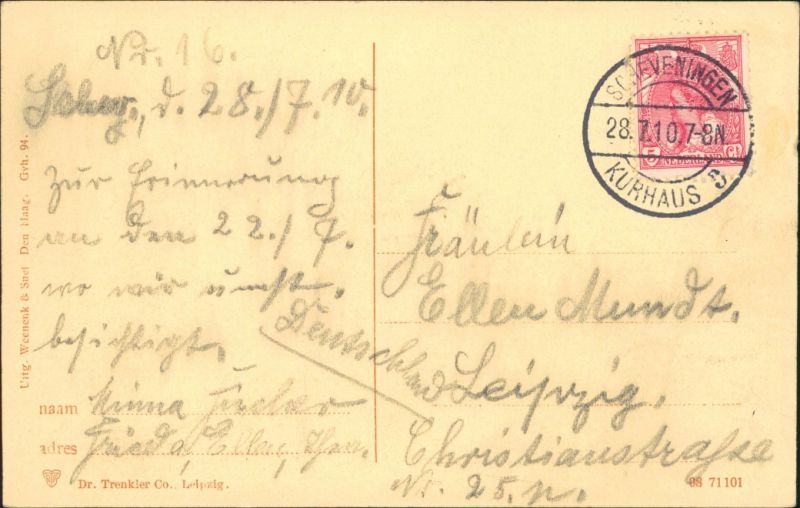 Nr. 16.
Schev., d. 28./7.10.
Zur Erinnerung
an den 22./7.
wo wir umst.
besichtigt.
naam Minna
adres Frieda, Ellen,
Dr. Trenkler Co., Leipzig.
Uitg. Weenenk & Snel Den Haag. Gvh. 94.
SCHEVENINGEN
28.7.10.7-8N
KURHAUS 3
5 Ct
NEDERLAND
Fräulein
Ellen Mundt.
Leipzig.
Christianstraße
Nr. 25. p.
Deutschland
08 71101